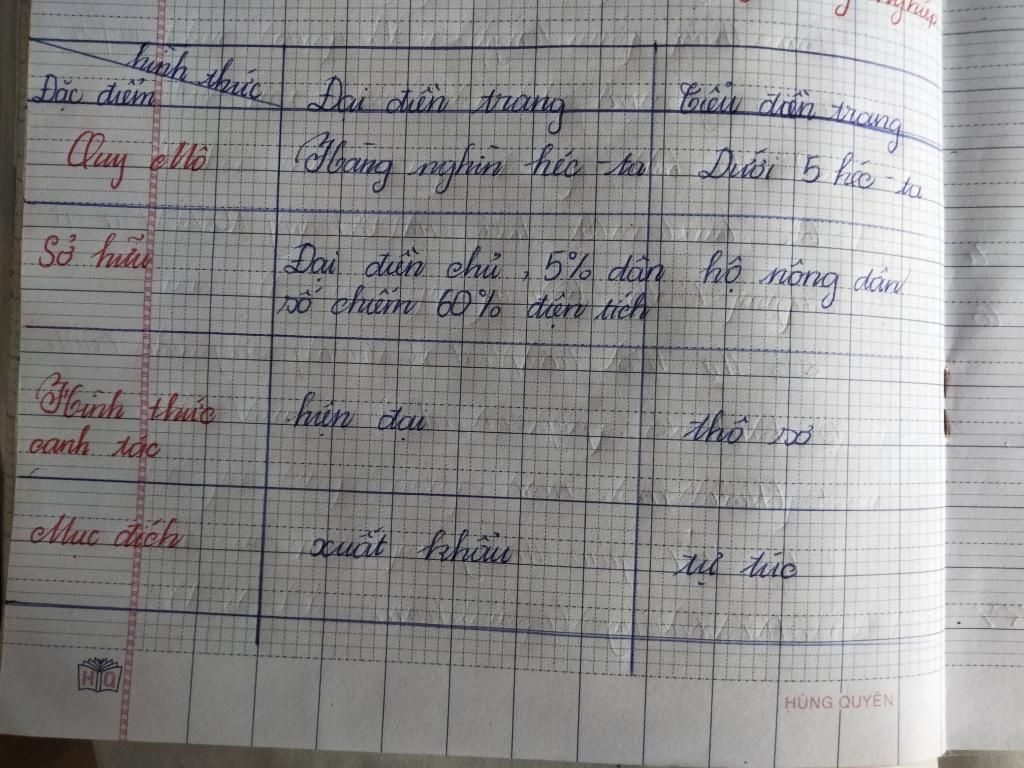 nghiệp
hình thức
Đặc điểm
Đại điền trang
Tiểu điền trang
Quy Mô
Hàng nghìn héc-ta
Dưới 5 héc-ta
Sở hữu
Đại điền chủ, 5% dân
số chiếm 60% diện tích
hộ nông dân
Hình thức
canh tác
hiện đại
thô sơ
Mục đích
xuất khẩu
tự túc
HQ
HÙNG QUYÊN